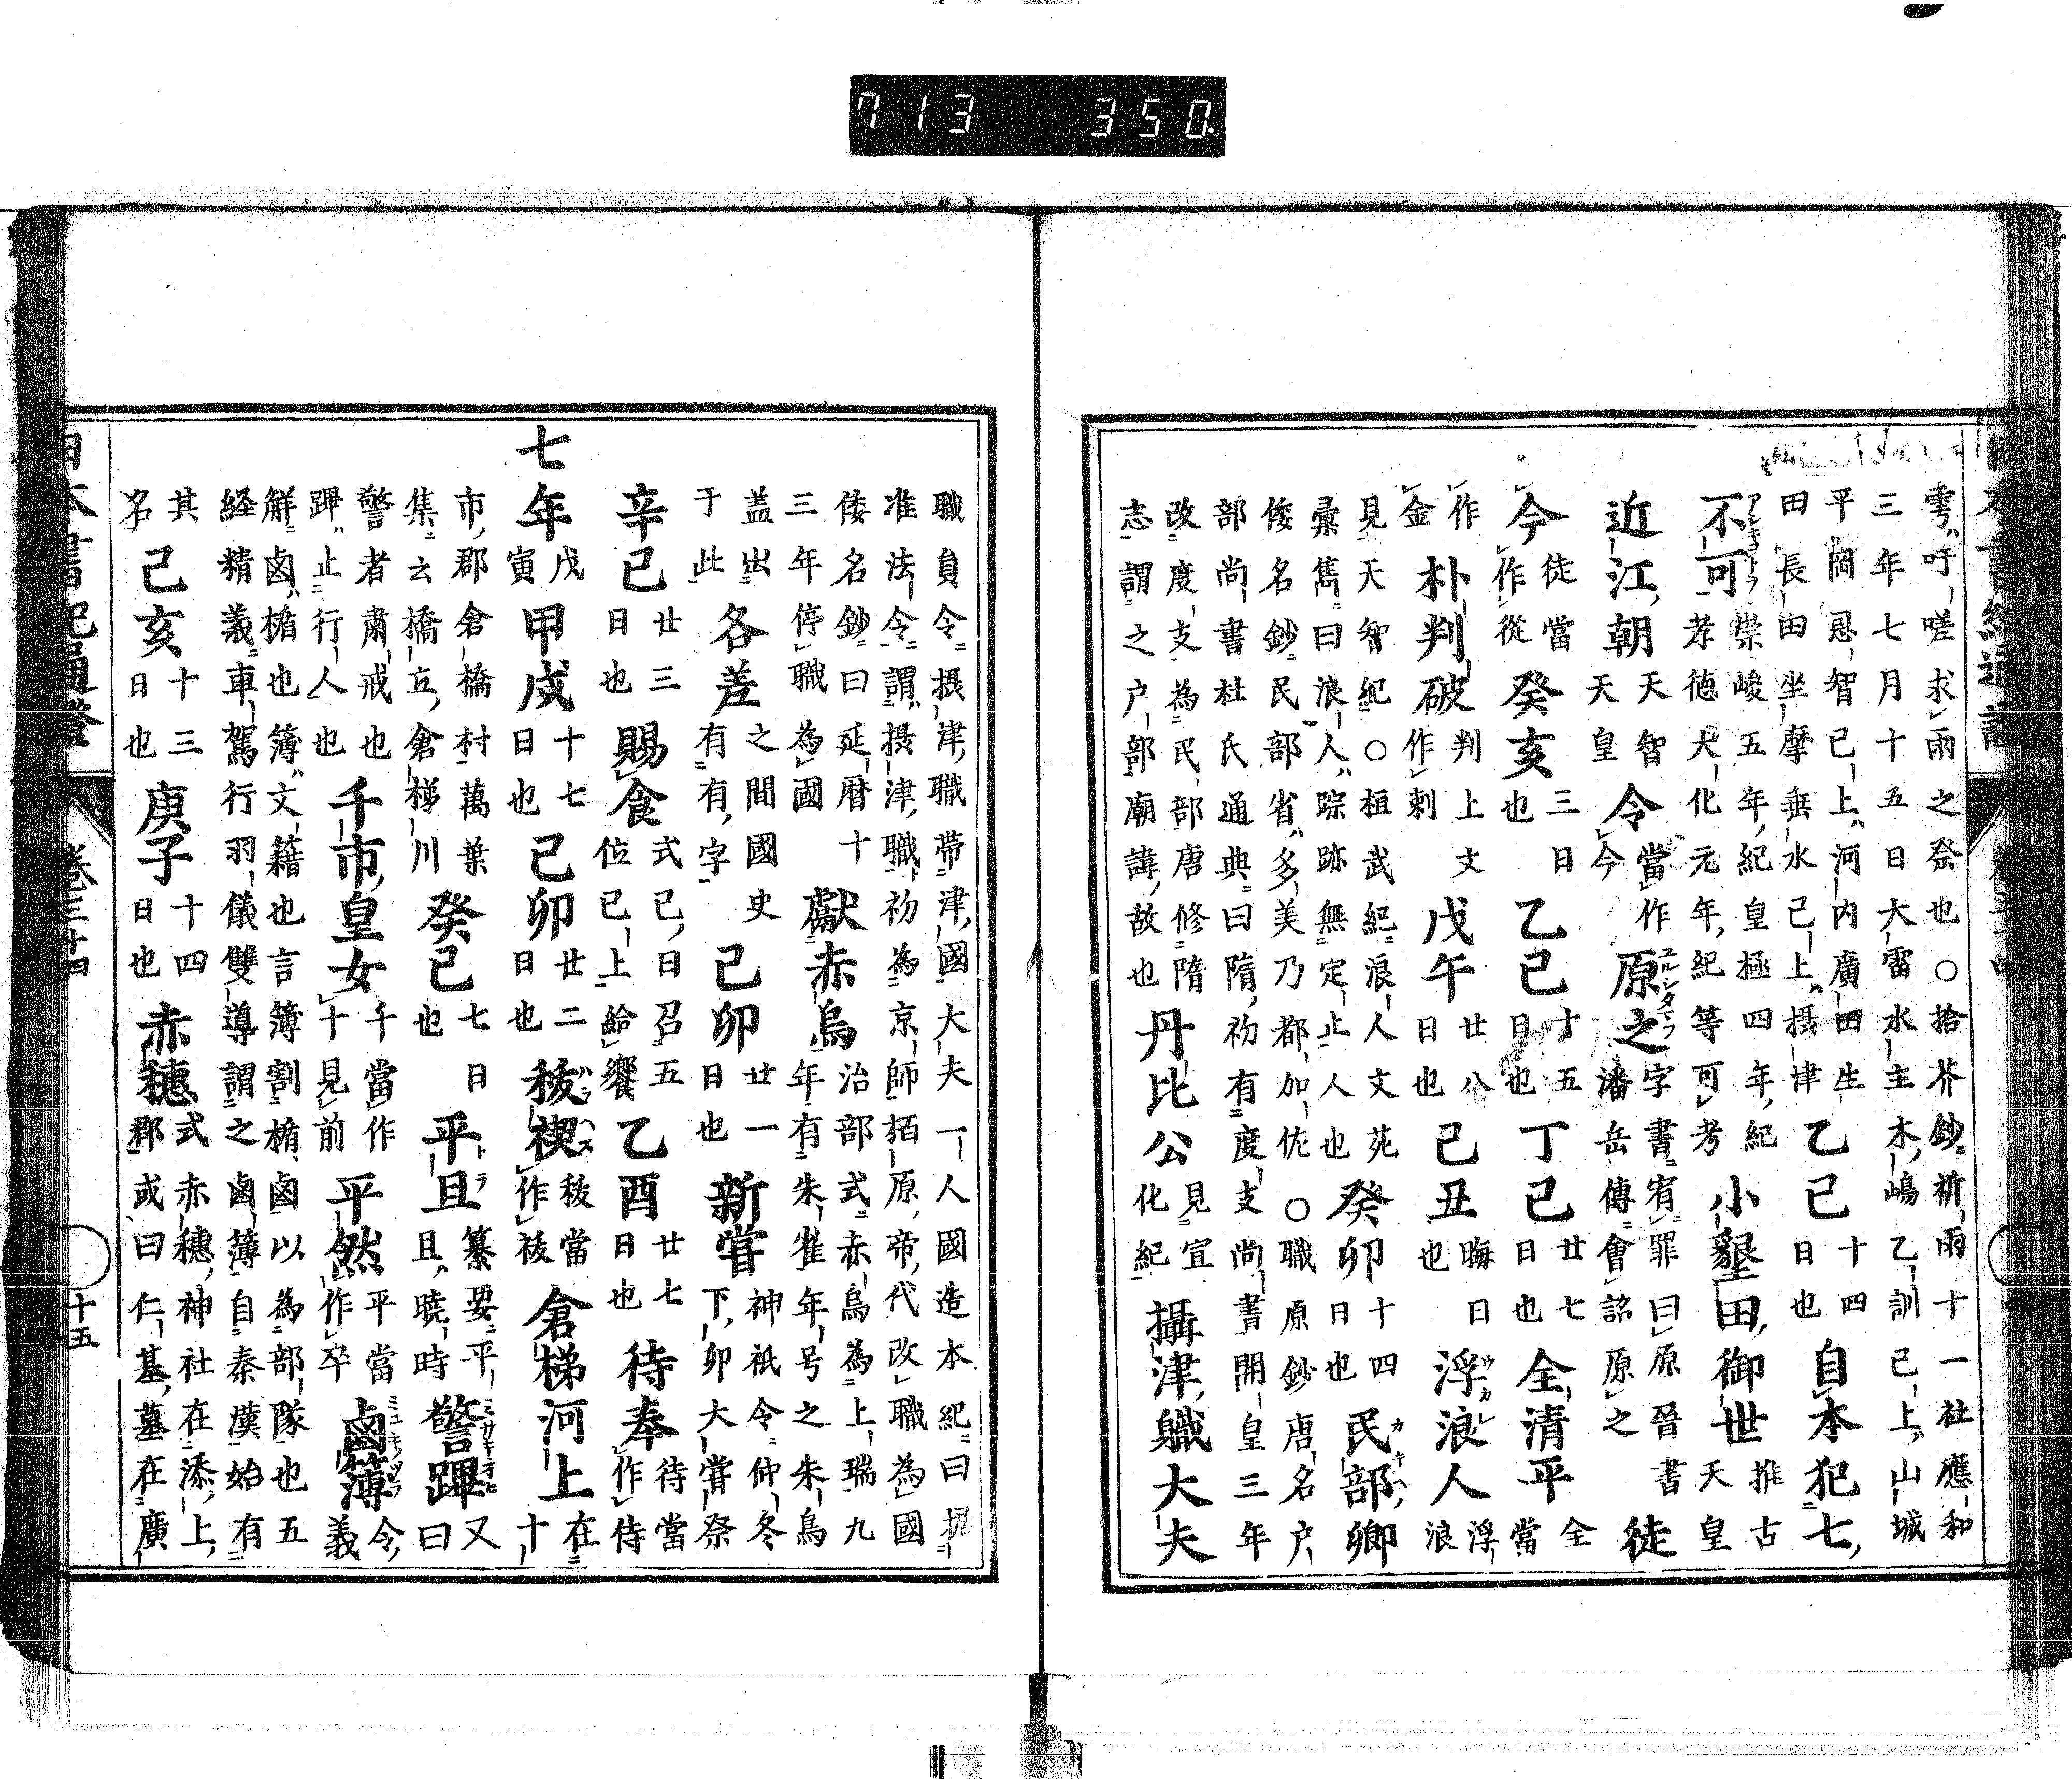 713 350
雩吁嗟求雨之祭也○拾芥鈔祈雨十一社應和
三年七月十五日大雷水主木嶋乙訓已上山城
平岡恩智已上河内廣田生田長田坐摩垂水已上摂津乙巳十四日也自本犯七
不可崇峻五年紀皇極四年紀孝徳大化元年紀等可考小墾田御世推古天皇
近江朝天智天皇令當作今原之字書宥罪曰原晉書潘岳傳會詔原之徒
今徒當作從癸亥三日也乙巳十五日也丁巳廿七日也全清平全當
作金朴判破判上文作刺戊午廿八日也己丑晦日也浮浪人浮浪
見天智紀○桓武紀浪人文苑彙雋曰浪人踪跡無定止人也癸卯十四日也民部卿
倭名鈔民部省多美乃都加佐○職原鈔唐名户
部尚書杜氏通典曰隋初有度支尚書開皇三年
改度支為民部唐修隋志謂之户部廟諱故也丹比公見宣化紀攝津職大夫
職員令摂津職帶津國大夫一人國造本紀曰摂
准法令謂摂津職初為京師栢原帝代改職為國
倭名鈔曰延暦十三年停職為國獻赤烏治部式赤烏為上瑞九年有朱雀年号之朱鳥
盖出于此各差之間國史有有字己卯廿一日也新嘗神祇令仲冬下卯大嘗祭
辛巳廿三日也賜食式已日召五位已上給饗乙酉廿七日也待奉待當作侍
七年戊寅甲戌十七日也己卯廿二日也秡禊秡當作祓倉梯河上在十
市郡倉橋村萬葉集云橋立倉梯川癸巳七日也平旦纂要平旦曉時警蹕又曰
警者肅戒也蹕止行人也千市皇女千當作十見前平然平當作卒鹵簿令義
解鹵楯也簿文籍也言簿割楯鹵以為部隊也五
経精義車駕行羽儀雙導謂之鹵簿自秦漢始有
其名己亥十三日也庚子十四日也赤穗式赤穗神社在添上郡或曰仁基墓在廣
日本書紀通證 卷三十四 十五